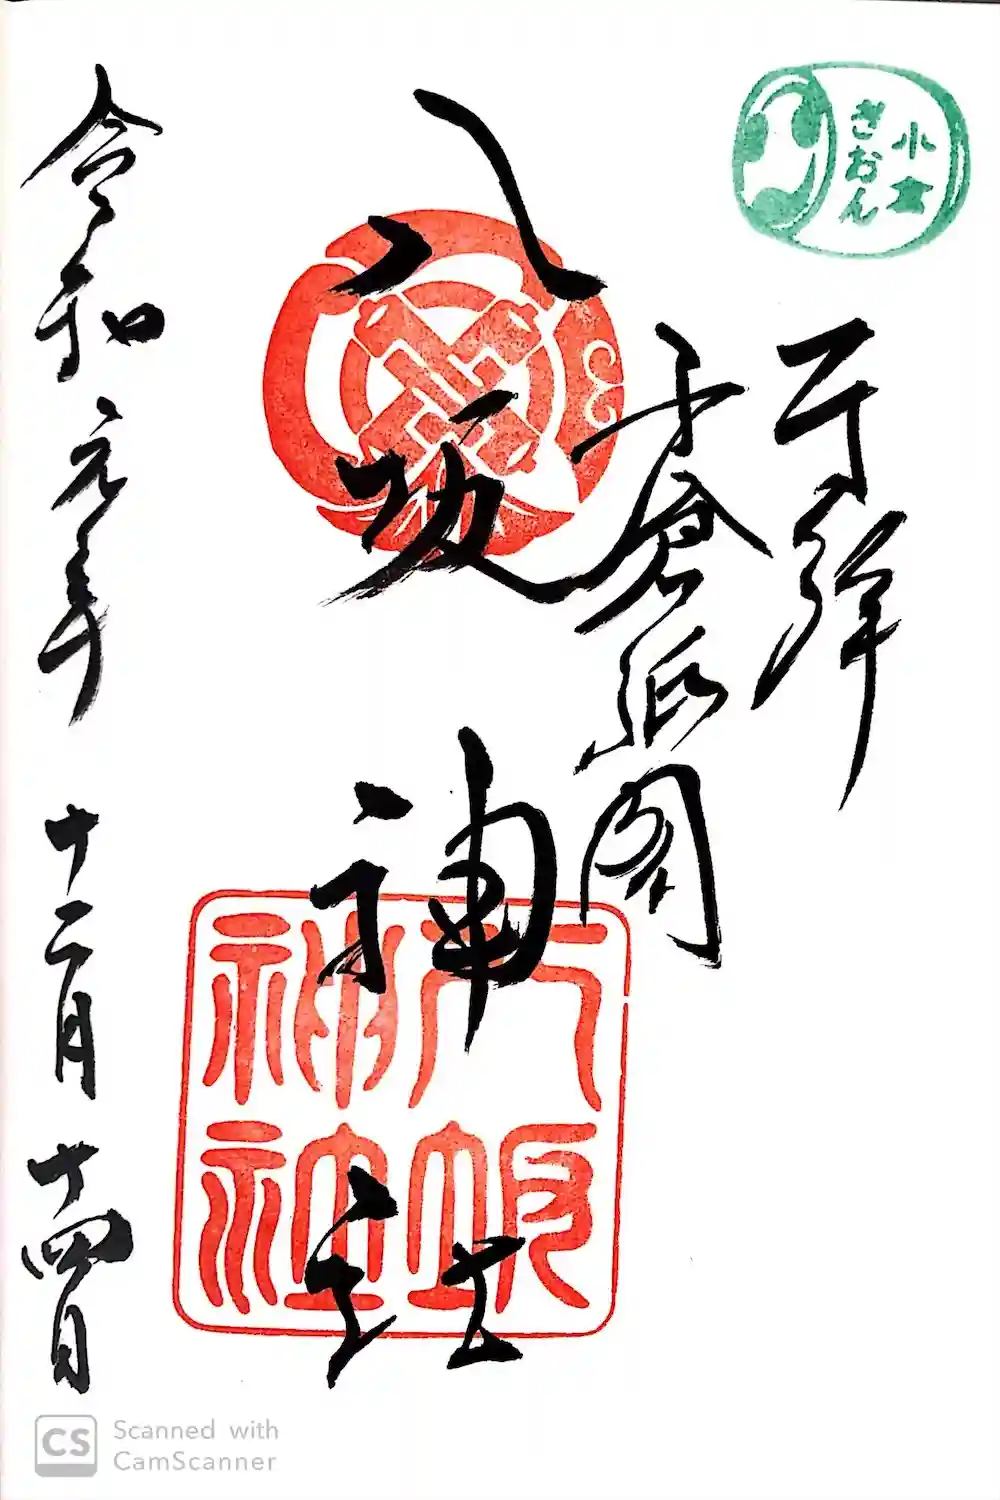 小倉
ぎおん
奉拝
小倉祇園
八坂神社
八坂
神社
令和元年十二月十四日
CS Scanned with
CamScanner